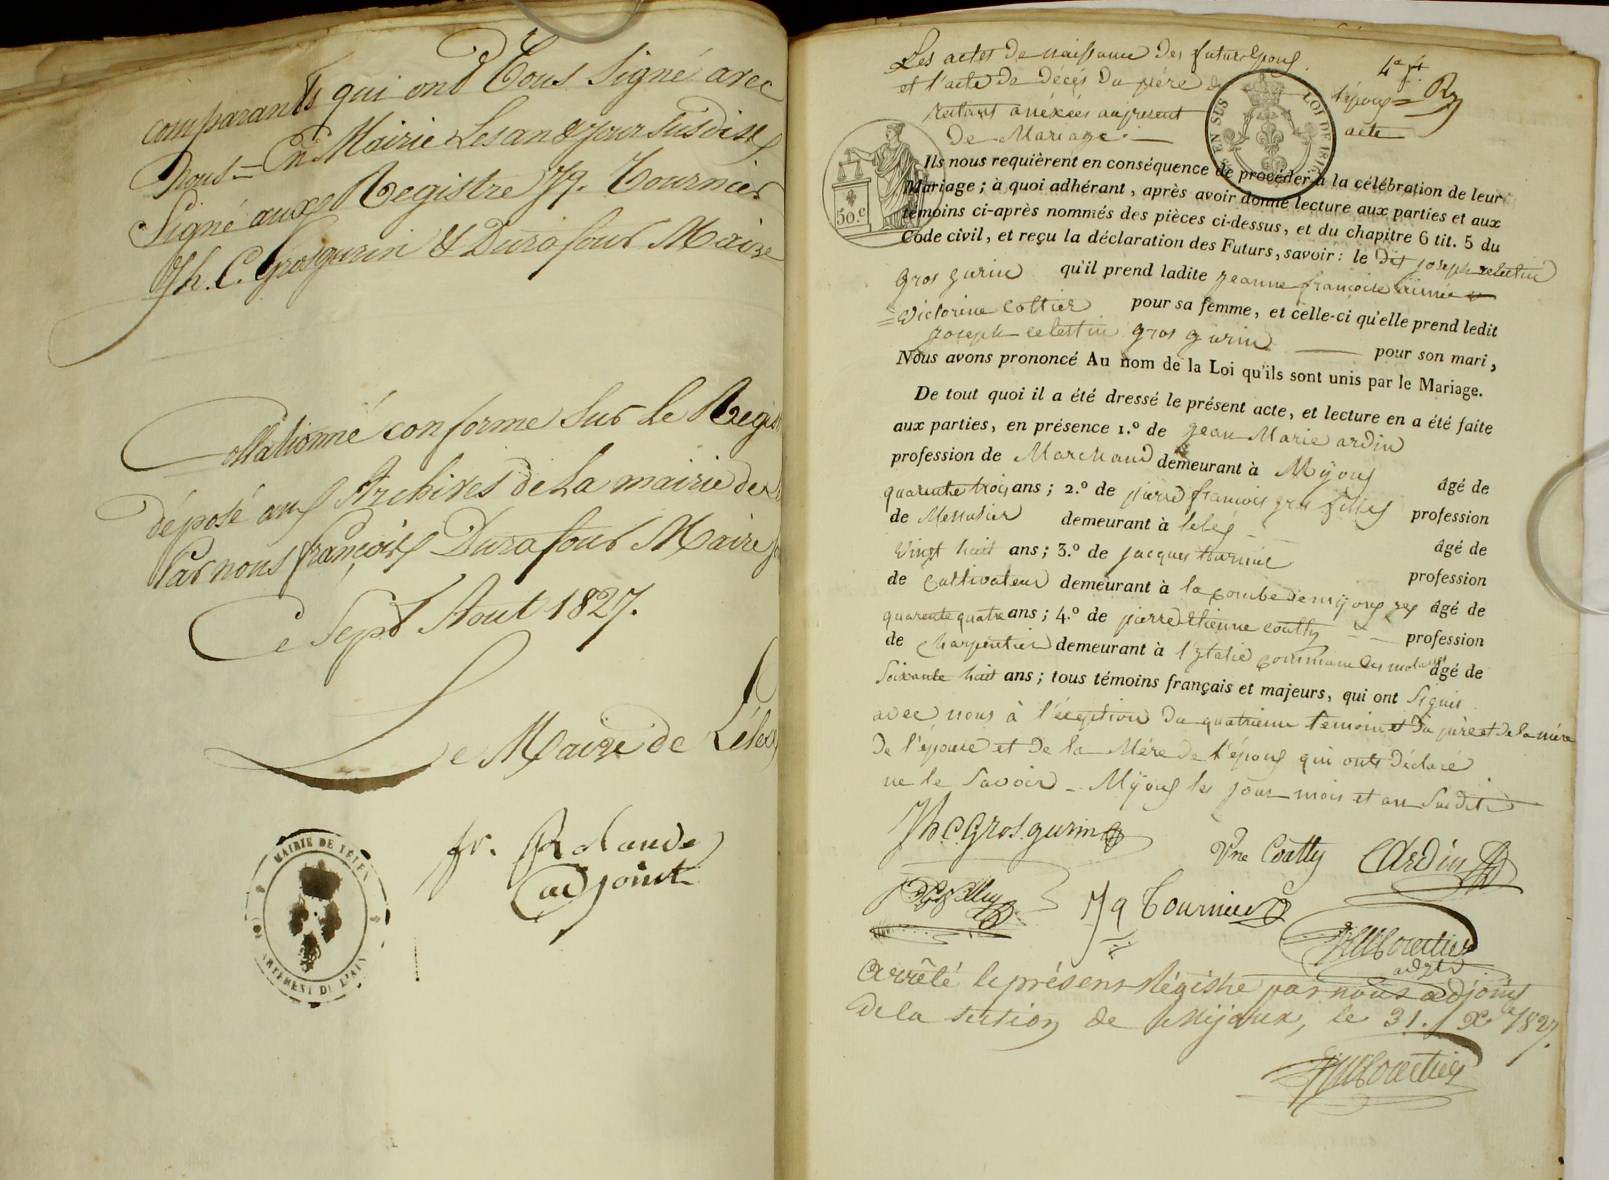 comparants qui ond Tous Signé avec
Nous = En Mairie Les an & jour Susdist
Signé aux Registre Jq. Tournier
Jh. C. grosgurin & Durafour Maire
Collationné conforme Sur Le Regis
déposé aux Archives de La mairie de
Par nous françois Durafour Maire
Ce Sept Aout 1827.
Le Maire de Lélex
adjoint
MAIRIE DE LÉLEX
DÉPARTEMENT DU L'AIN
Les actes de naissance des futurs Epoux
et l'acte de décès du père de l'époux
Restant anéxées au présent acte
de Mariage.
EN SUS
LOI DE 181
50.c
Ils nous requièrent en conséquence de procéder à la célébration de leur
Mariage ; à quoi adhérant, après avoir donné lecture aux parties et aux
témoins ci-après nommés des pièces ci-dessus, et du chapitre 6 tit. 5 du
Code civil, et reçu la déclaration des Futurs, savoir : le dit joseph celestin
Gros gurin qu'il prend ladite jeanne francoise aimée
Victorine Cottier pour sa femme, et celle-ci qu'elle prend ledit
joseph celestin gros gurin pour son mari,
Nous avons prononcé Au nom de la Loi qu'ils sont unis par le Mariage.
De tout quoi il a été dressé le présent acte, et lecture en a été faite
aux parties, en présence 1.º de jean Marie ardin
profession de Marchand demeurant à Mijoux âgé de
quarente trois ans ; 2.º de pierre francois gros fillies profession
de Menusier demeurant à lelex âgé de
Vingt huit ans ; 3.º de jacques tournier profession
de Cultivateur demeurant à la combe de mijoux âgé de
quarente quatre ans ; 4.º de pierre Etienne coutty profession
de charpentier demeurant à commune des molunes âgé de
Soixante huit ans ; tous témoins français et majeurs, qui ont Signés
avec nous à l'éxeption du quatrieme temoin et du père et de la mère
de l'épouse et de la Mère de l'époux qui onts déclaré
ne le Savoir – Mijoux les jour mois et an Susdits
Jh C Grosgurin
Vne Coutty
Ardin
Jq Tournier
adjt
Arrêté le présent Régistre par nous adjoint
de la section de Mijoux, le 31. Xe 1827.